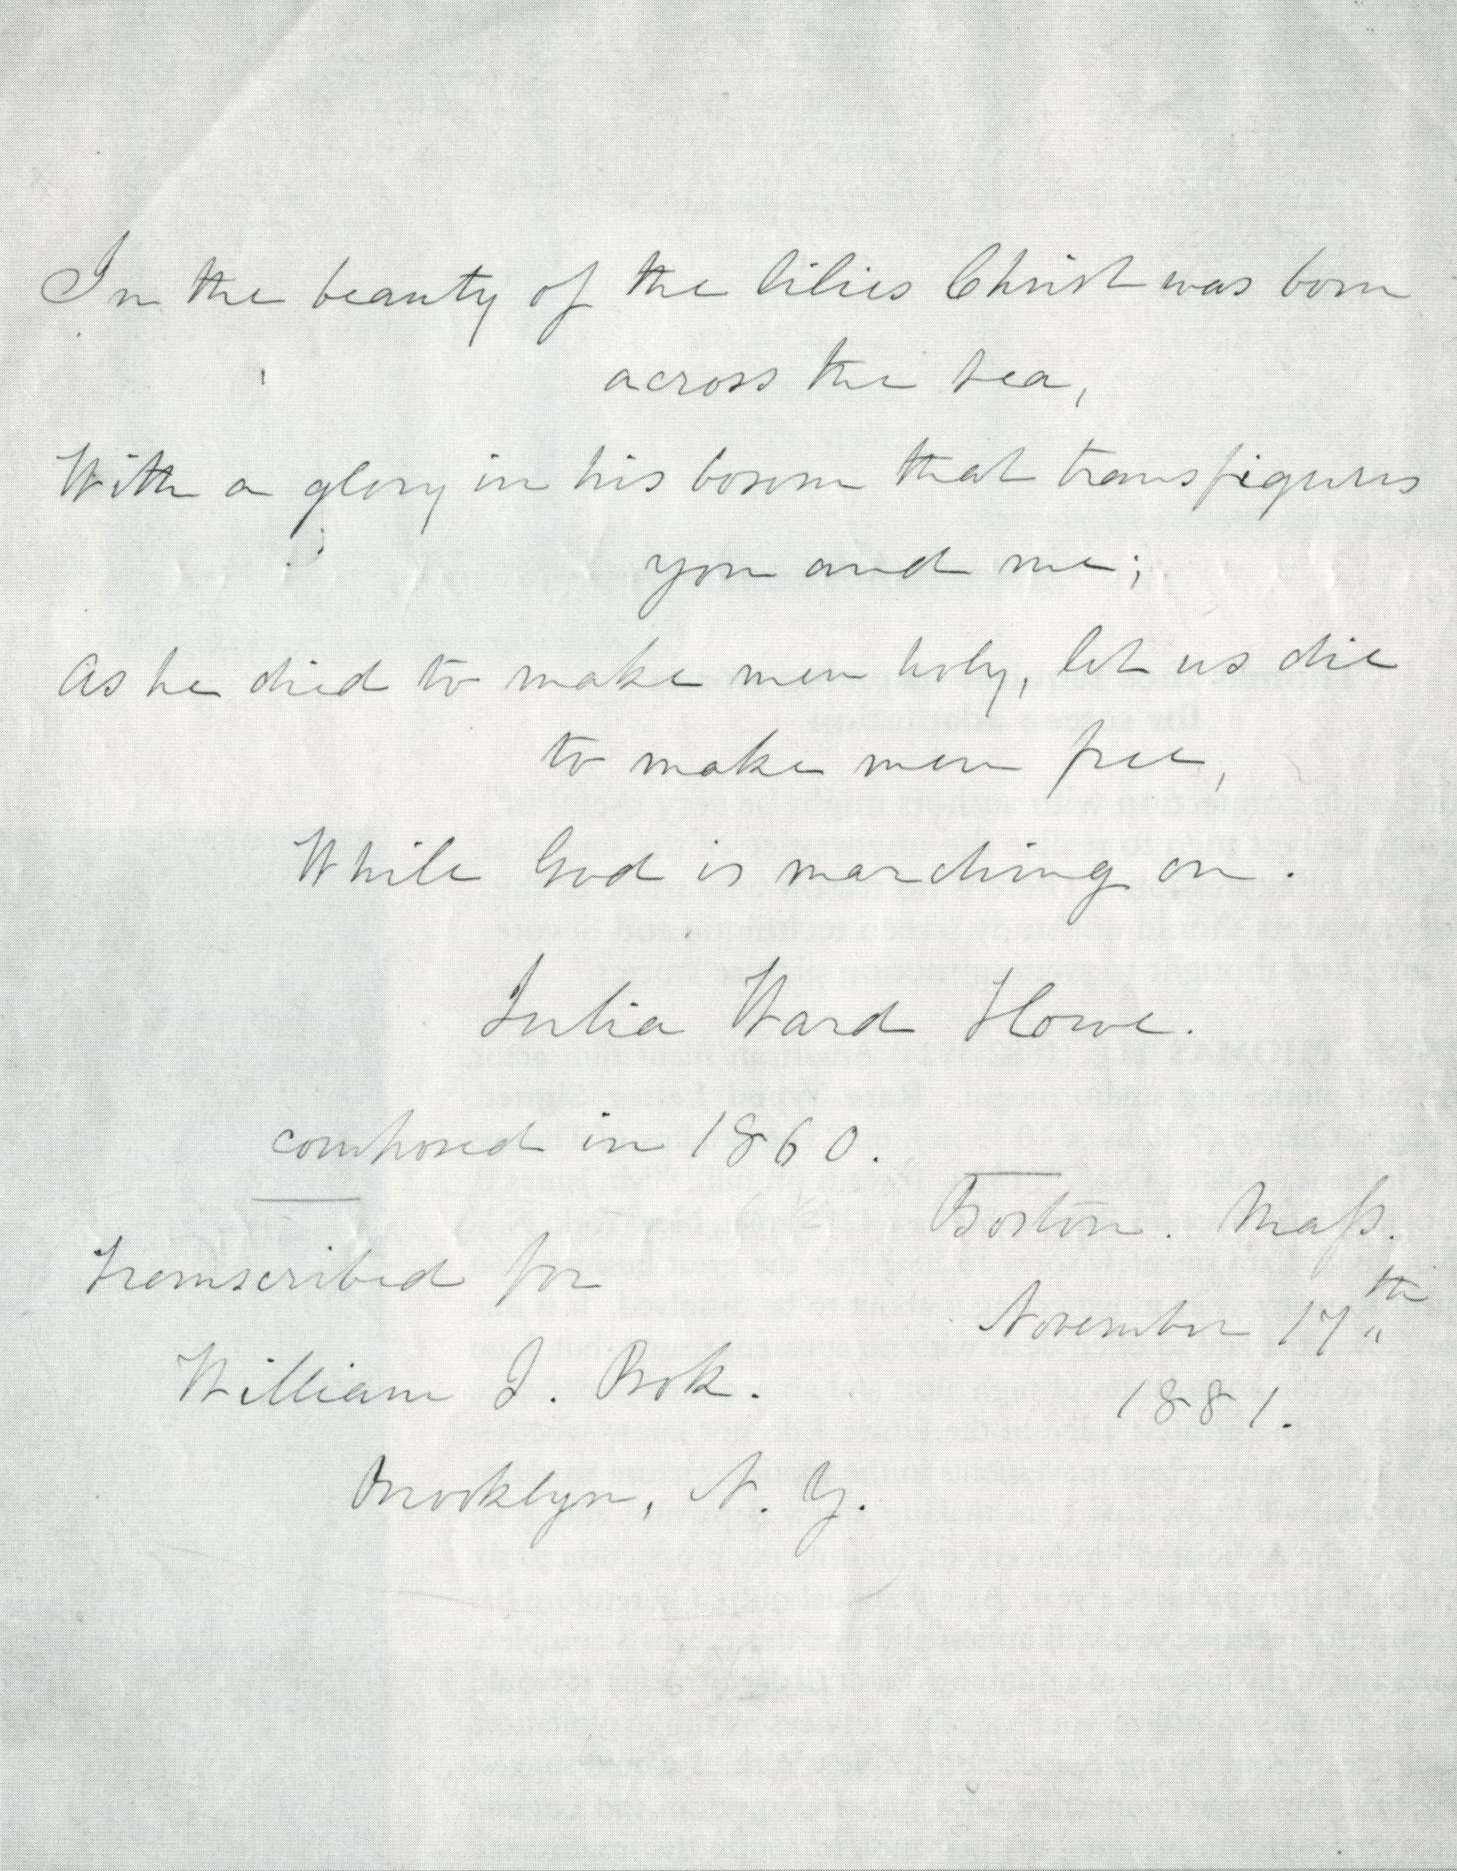 In the beauty of the lilies Christ was born
across the sea,
With a glory in his bosom that transfigures
you and me;
As he died to make men holy, let us die
to make men free,
While God is marching on.
Julia Ward Howe.
composed in 1860.
Boston. Mass.
November 17th
1881.
transcribed for
William J. Bok.
Brooklyn, N. Y.